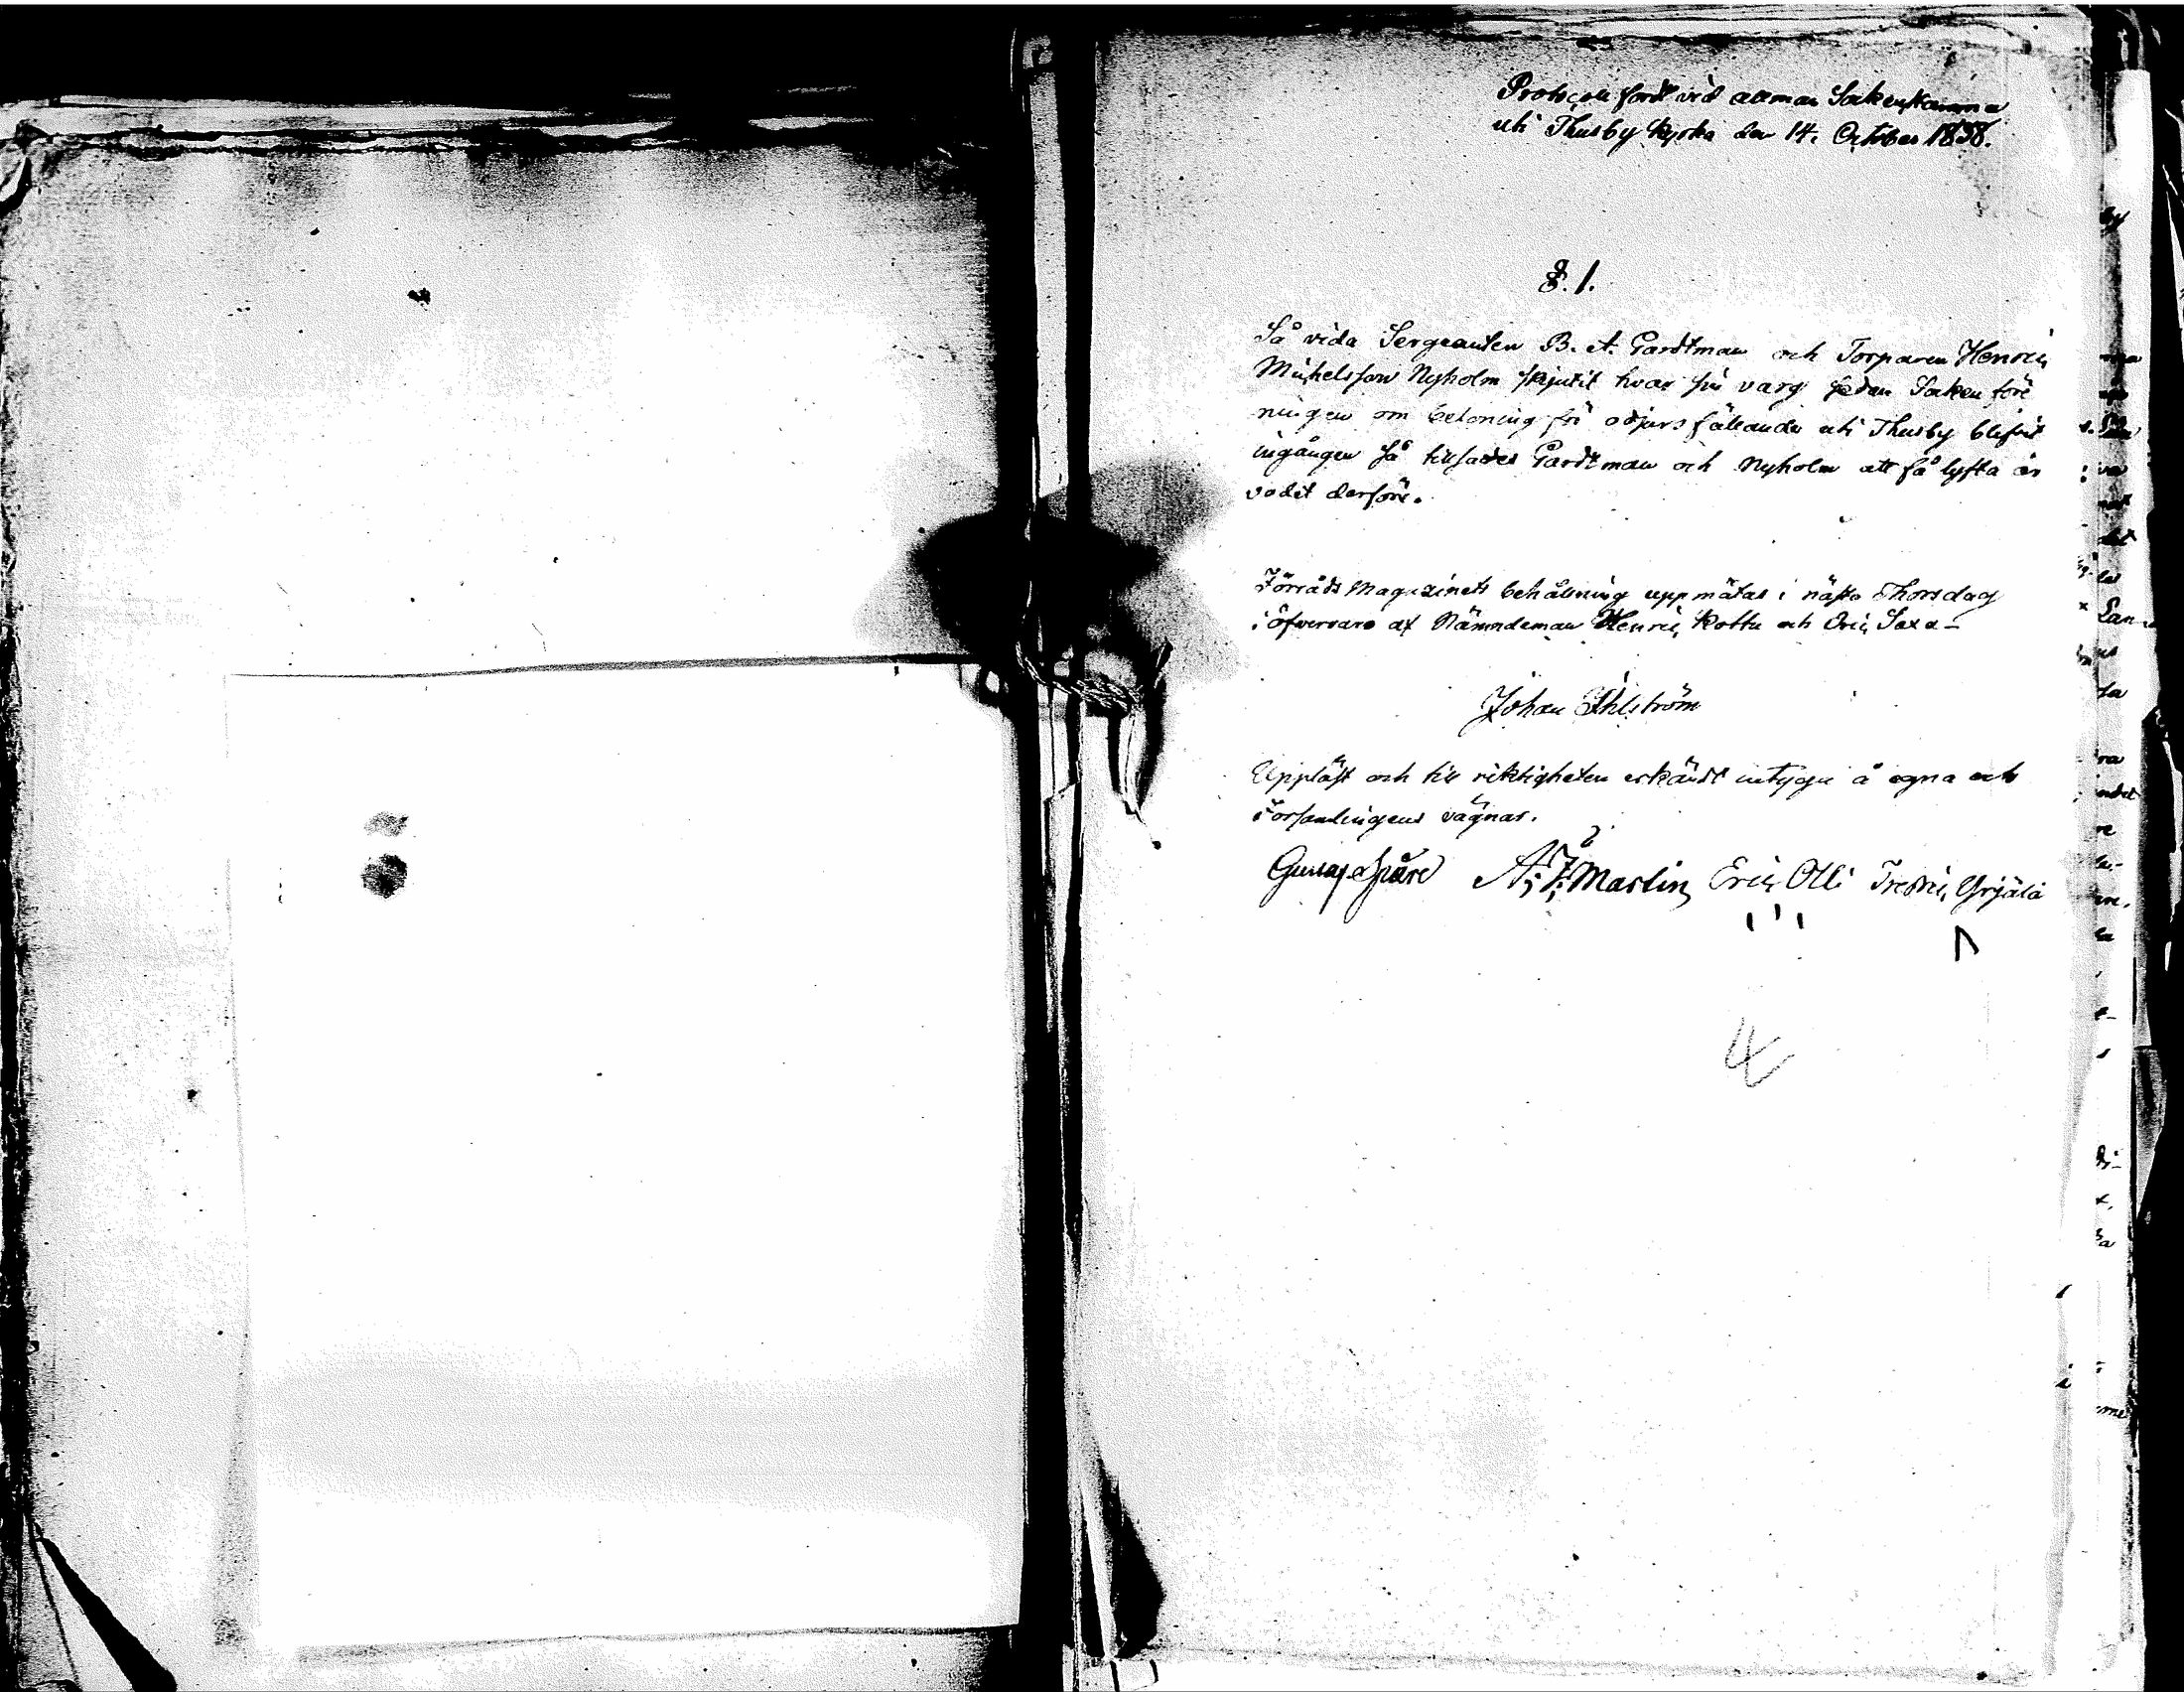 Protocoll fördt vid allmän Sockenstämma
uti Thusby Kyrka den 14. October 1838.
§. 1.
Så vida Sergeanten B. A. Gardtman och Torparen Henric
Michelsson Nyholm skjutit hvar sin varg sedan Socken före
ningen om belöning för odjurs fällande uti Thusby blifvit
ingången så tillsades Gardtman och Nyholm att få lyfta ar
vodet derföre.
Förråds Magazinets behållning uppmätas i nästa Thorsdag
i öfvervaro af Nämndeman Henric Rottu och Eric Saxa-
Johan Ahlström
Uppläst och till riktigheten erkändt intyga å egna och
Församlingens vägnar.
Gustaf Spåre A. F. Martin Eric Olli Fredric Yrjälä
4